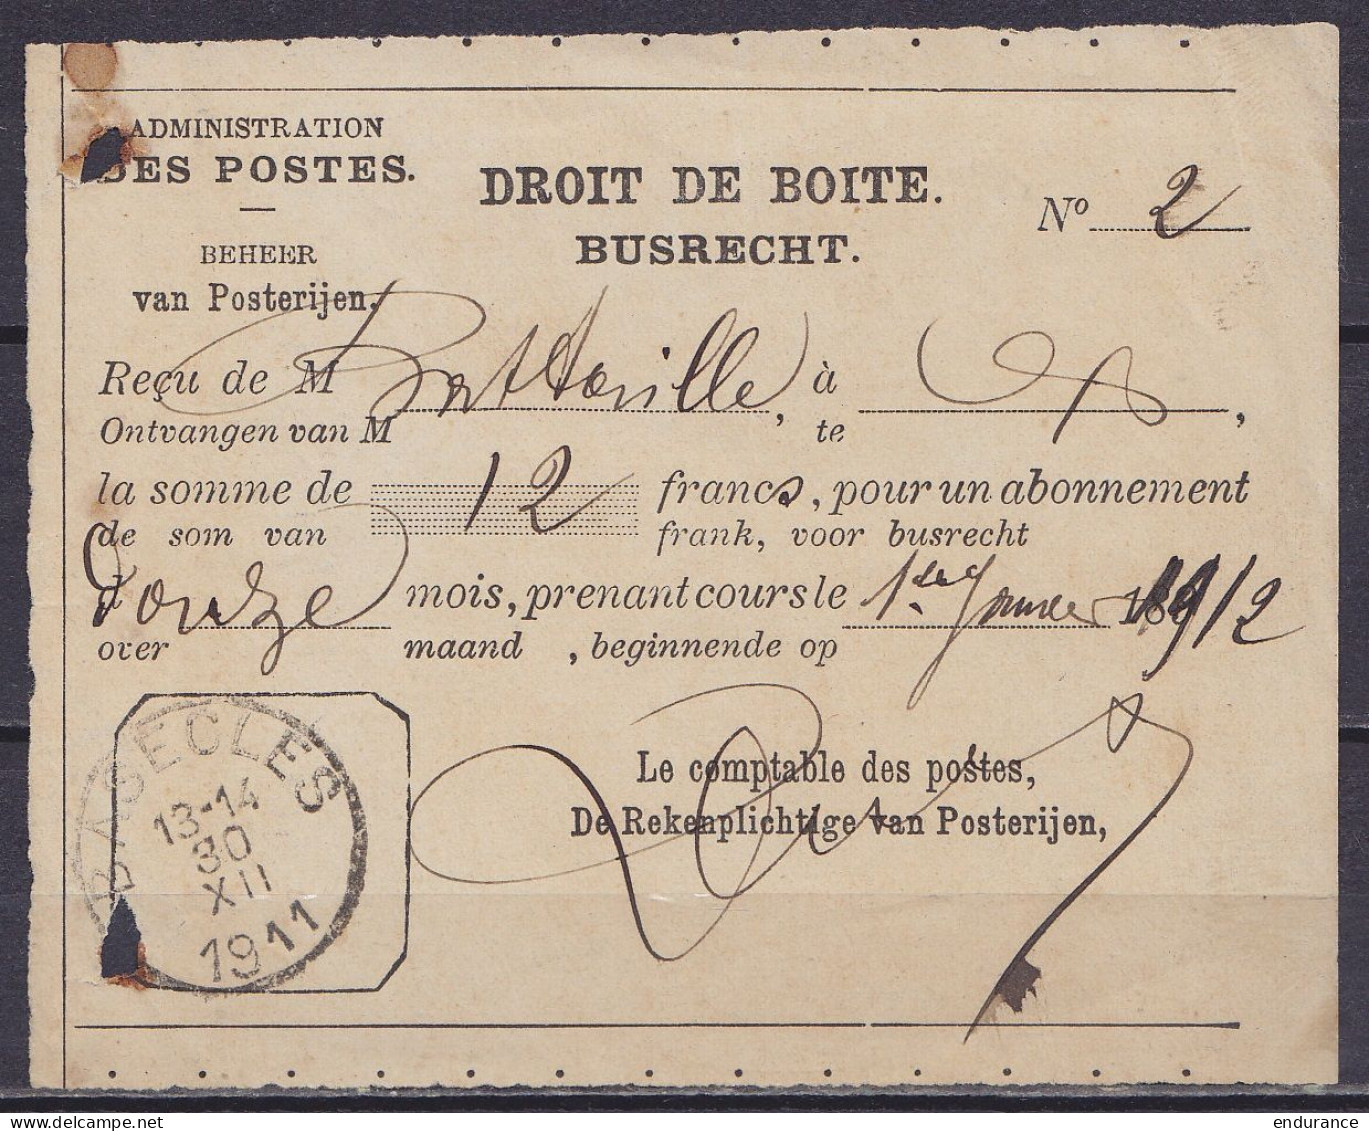 ADMINISTRATION
DES POSTES.
BEHEER
van Posterijen.
DROIT DE BOITE.
BUSRECHT.
Nº 2
Reçu de M à ,
Ontvangen van M te
la somme de 12 francs, pour un abonnement
de som van frank, voor busrecht
douze mois, prenant cours le 1er Janvier 1912
over maand , beginnende op
Le comptable des postes,
De Rekenplichtige van Posterijen,
BASECLES
13-14
30
XII
1911
endurance